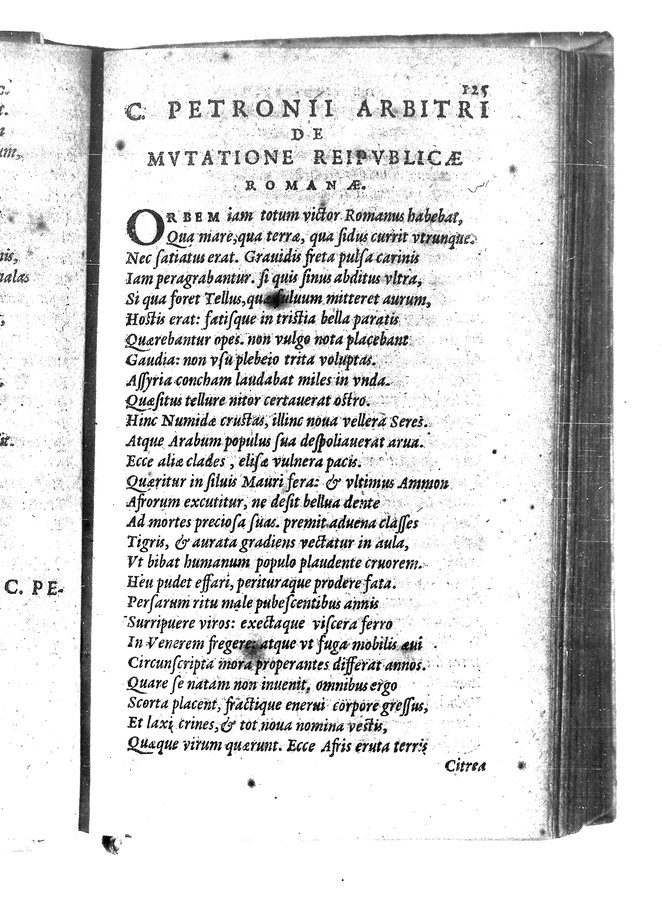 125
C. PETRONII ARBITRI
DE
MVTATIONE REIPVBLICÆ
ROMANÆ.
ORBEM iam totum victor Romanus habebat,
Qua mare, qua terræ, qua ſidus currit vtrunque.
Nec ſatiatus erat. Grauidis freta pulſa carinis
Iam peragrabantur. ſi quis ſinus abditus vltra,
Si qua foret Tellus, quæ fuluum mitteret aurum,
Hoſtis erat: fatiſque in triſtia bella paratis
Quærebantur opes. non vulgo nota placebant
Gaudia: non vſu plebeio trita voluptas.
Aſſyria concham laudabat miles in vnda.
Quæſitus tellure nitor certauerat oſtro.
Hinc Numidæ cruſtas, illinc noua vellera Seres.
Atque Arabum populus ſua deſpoliauerat arua.
Ecce aliæ clades, eliſæ vulnera pacis.
Quæritur in ſiluis Mauri fera: & vltimus Ammon
Afrorum excutitur, ne deſit bellua dente
Ad mortes precioſa ſuas. premit aduena claſſes
Tigris, & aurata gradiens vectatur in aula,
Vt bibat humanum populo plaudente cruorem.
Heu pudet effari, perituraque prodere fata.
Perſarum ritu male pubeſcentibus annis
Surripuere viros: exectaque viſcera ferro
In Venerem fregere: atque vt fuga mobilis æui
Circunſcripta mora properantes differat annos.
Quare ſe natam non inuenit, omnibus ergo
Scorta placent, fractique enerui corpore greſſus,
Et laxi crines, & tot noua nomina veſtis,
Quæque virum quærunt. Ecce Afris eruta terris
Citrea
C. PE-